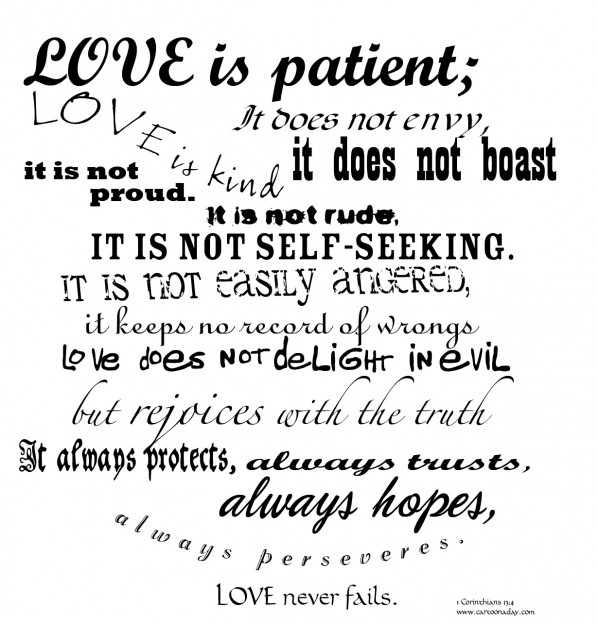 LOVE is patient;
LOVE is kind
It does not envy,
it does not boast
it is not
proud.
It is not rude,
IT IS NOT SELF-SEEKING.
IT IS NOT EASILY ANGERED,
it keeps no record of wrongs
Love does NOT deLIGHT IN eVIL
but rejoices with the truth
It always protects, always trusts,
always hopes,
always perseveres.
LOVE never fails.
1 Corinthians 13:4
www.cartoonaday.com